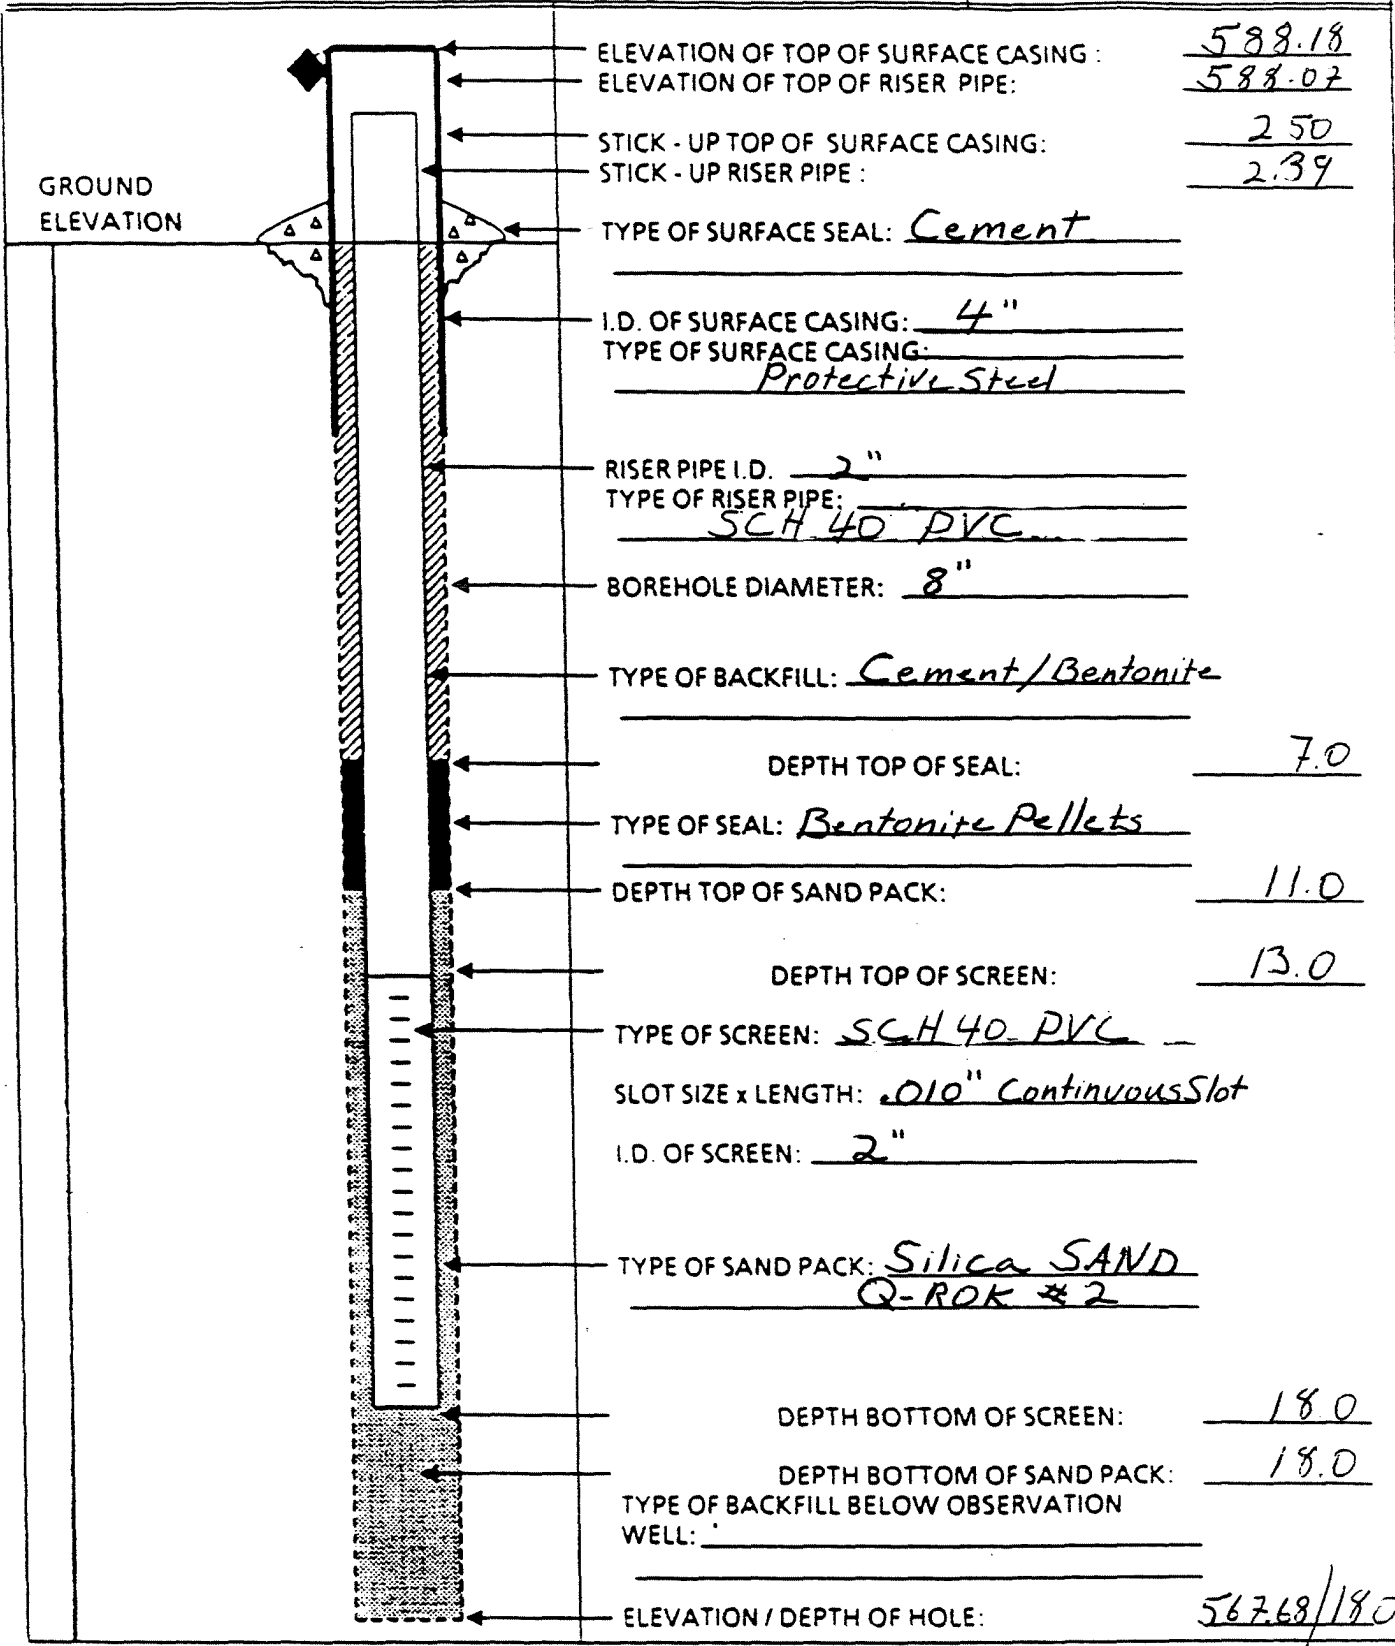 ELEVATION OF TOP OF SURFACE CASING : 588.18
ELEVATION OF TOP OF RISER PIPE: 588.07
STICK - UP TOP OF SURFACE CASING: 2 50
STICK - UP RISER PIPE : 2.39
GROUND
ELEVATION
TYPE OF SURFACE SEAL: Cement
I.D. OF SURFACE CASING: 4"
TYPE OF SURFACE CASING:
Protective Steel
RISER PIPE I.D. 2"
TYPE OF RISER PIPE:
SCH 40 PVC
BOREHOLE DIAMETER: 8"
TYPE OF BACKFILL: Cement/Bentonite
DEPTH TOP OF SEAL: 7.0
TYPE OF SEAL: Bentonite Pellets
DEPTH TOP OF SAND PACK: 11.0
DEPTH TOP OF SCREEN: 13.0
TYPE OF SCREEN: SCH 40 PVC
SLOT SIZE x LENGTH: .010" Continuous Slot
I.D. OF SCREEN: 2"
TYPE OF SAND PACK: Silica SAND
Q-ROK #2
DEPTH BOTTOM OF SCREEN: 18.0
DEPTH BOTTOM OF SAND PACK: 18.0
TYPE OF BACKFILL BELOW OBSERVATION
WELL:
ELEVATION / DEPTH OF HOLE: 567.68/18.0